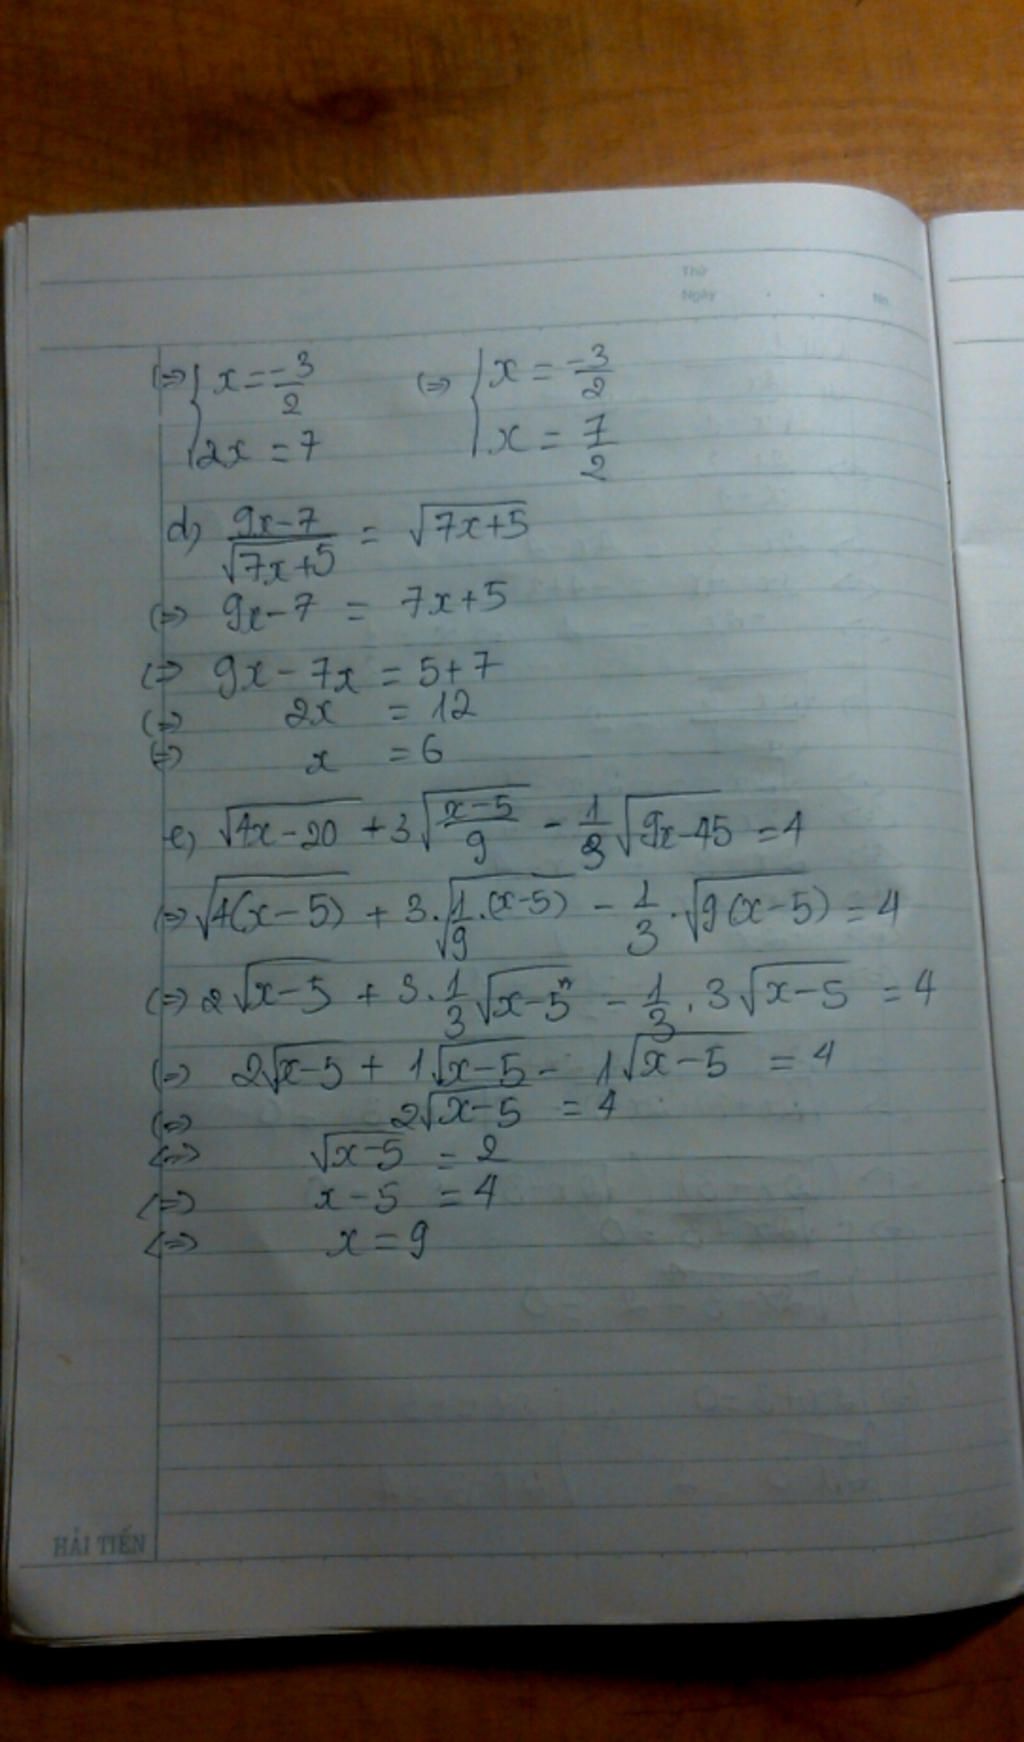 Thứ
Ngày . . No.
(=> { x = -3/2 (=> { x = -3/2
2x = 7 x = 7/2
d) (9x-7)/√(7x+5) = √(7x+5)
(=) 9x-7 = 7x+5
(=> 9x - 7x = 5+7
(=) 2x = 12
(=) x = 6
e) √(4x-20) + 3√((x-5)/9) - 1/3 √(9x-45) = 4
(=> √(4(x-5)) + 3.√(1/9.(x-5)) - 1/3.√(9(x-5)) = 4
(=> 2√(x-5) + 3.1/3 √(x-5) - 1/3.3√(x-5) = 4
(=> 2√(x-5) + 1√(x-5) - 1√(x-5) = 4
(=> 2√(x-5) = 4
<=> √(x-5) = 2
<=> x-5 = 4
<=> x = 9
HẢI TIẾN